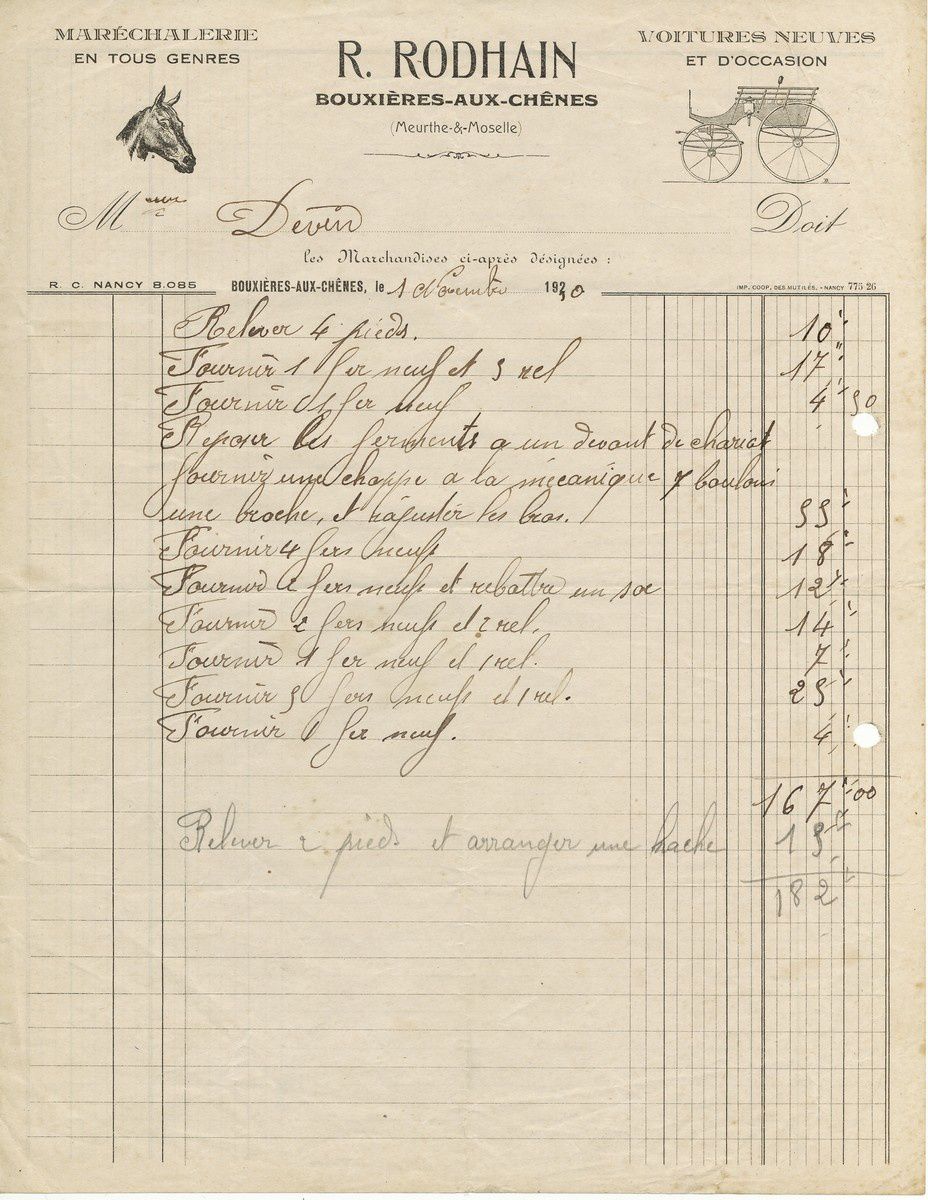 MARÉCHALERIE
EN TOUS GENRES
R. RODHAIN
BOUXIÈRES-AUX-CHÊNES
(Meurthe-&-Moselle)
VOITURES NEUVES
ET D'OCCASION
M Devin Doit
les Marchandises ci-après désignées :
R. C. NANCY 8.085
BOUXIÈRES-AUX-CHÊNES, le 1 Novembre 1930
IMP. COOP. DES MUTILÉS. - NANCY 775 26
Relever 4 pieds. 10
Fournir 1 fer neuf et 3 rel 17
Fournir 1 fer neuf 4 50
Reposer les ferments a un devant de chariot
fournir une chappe a la mécanique 7 boulons
une broche, et rajuster les bras. 55
Fournir 4 fers neufs 18
Fournir 2 fers neufs et rebattre un soc 12
Fournir 2 fers neufs et 2 rel. 14
Fournir 1 fer neuf et 1 rel. 7
Fournir 5 fers neufs et 1 rel. 25
Fournir 1 fer neuf. 4
167 00
Relever 2 pieds et arranger une hache 15
182